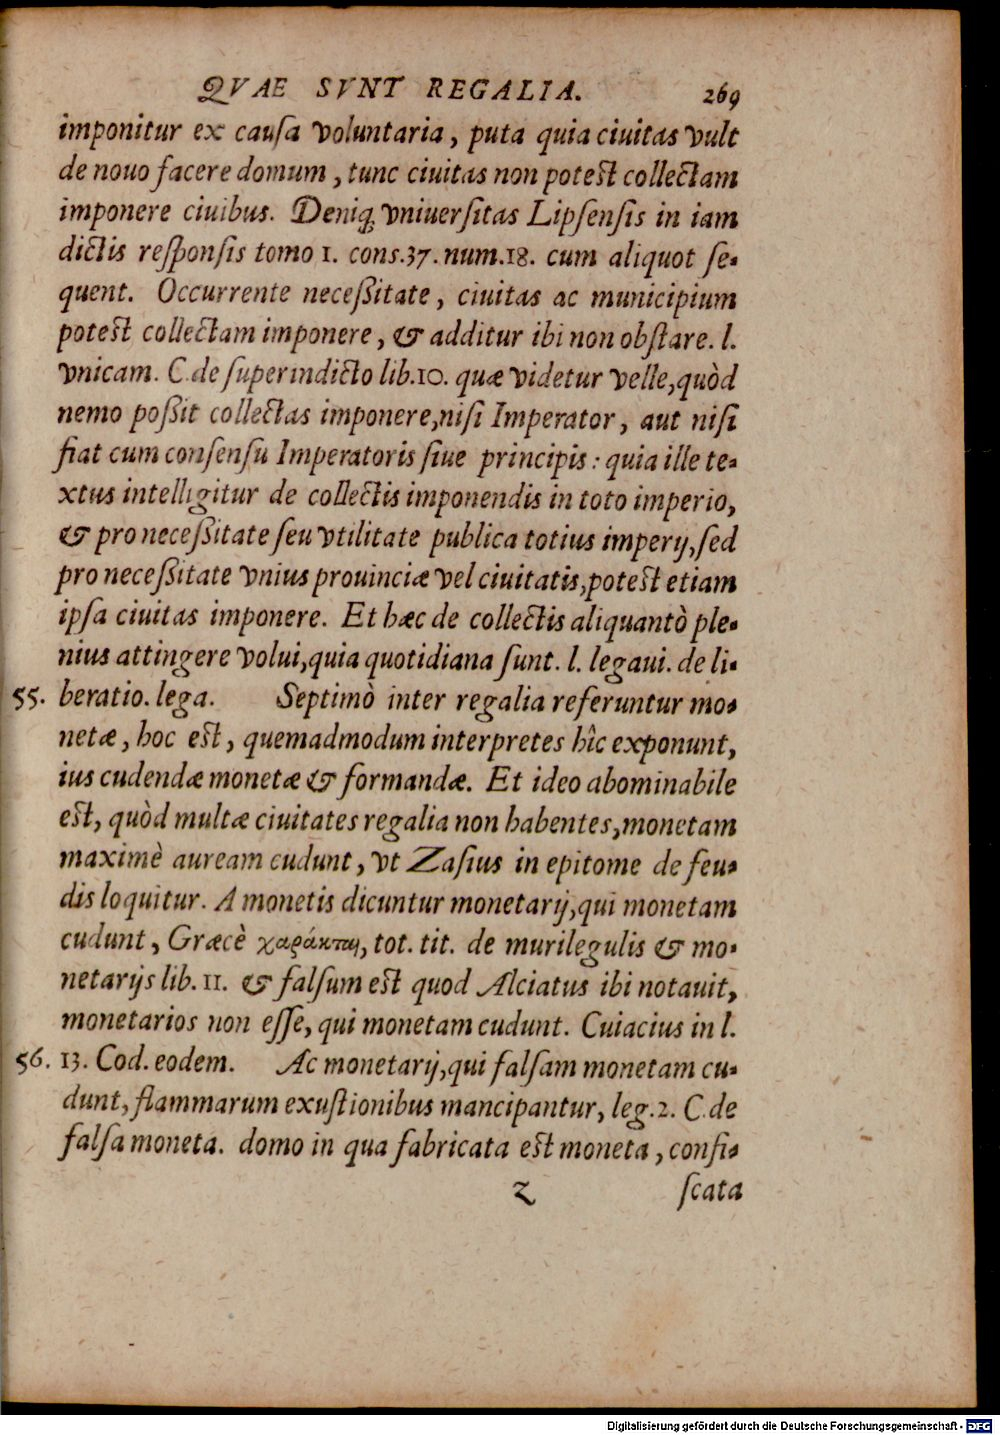 QVAE SVNT REGALIA. 269
imponitur ex cauſa voluntaria, puta quia ciuitas vult
de nouo facere domum, tunc ciuitas non poteſt collectam
imponere ciuibus. Deniq; vniuerſitas Lipſenſis in iam
dictis reſponſis tomo 1. conſ.37. num.18. cum aliquot ſe-
quent. Occurrente neceßitate, ciuitas ac municipium
poteſt collectam imponere, & additur ibi non obſtare. l.
vnicam. C. de ſuperindicto lib.10. quæ videtur velle, quòd
nemo poßit collectas imponere, niſi Imperator, aut niſi
fiat cum conſenſu Imperatoris ſiue principis: quia ille te-
xtus intelligitur de collectis imponendis in toto imperio,
& pro neceßitate ſeu vtilitate publica totius imperij, ſed
pro neceßitate vnius prouinciæ vel ciuitatis, poteſt etiam
ipſa ciuitas imponere. Et hæc de collectis aliquantò ple-
nius attingere volui, quia quotidiana ſunt. l. legaui. de li-
55. beratio. lega. Septimò inter regalia referuntur mo-
netæ, hoc eſt, quemadmodum interpretes hîc exponunt,
ius cudendæ monetæ & formandæ. Et ideo abominabile
eſt, quòd multæ ciuitates regalia non habentes, monetam
maximè auream cudunt, vt Zaſius in epitome de feu-
dis loquitur. A monetis dicuntur monetarij, qui monetam
cudunt, Græcè χαράκται, tot. tit. de murilegulis & mo-
netarijs lib. 11. & falſum eſt quod Alciatus ibi notauit,
monetarios non eſſe, qui monetam cudunt. Cuiacius in l.
56. 13. Cod. eodem. Ac monetarij, qui falſam monetam cu-
dunt, flammarum exuſtionibus mancipantur, leg.2. C. de
falſa moneta. domo in qua fabricata eſt moneta, confi-
Z ſcata
Digitalisierung gefördert durch die Deutsche Forschungsgemeinschaft - DFG